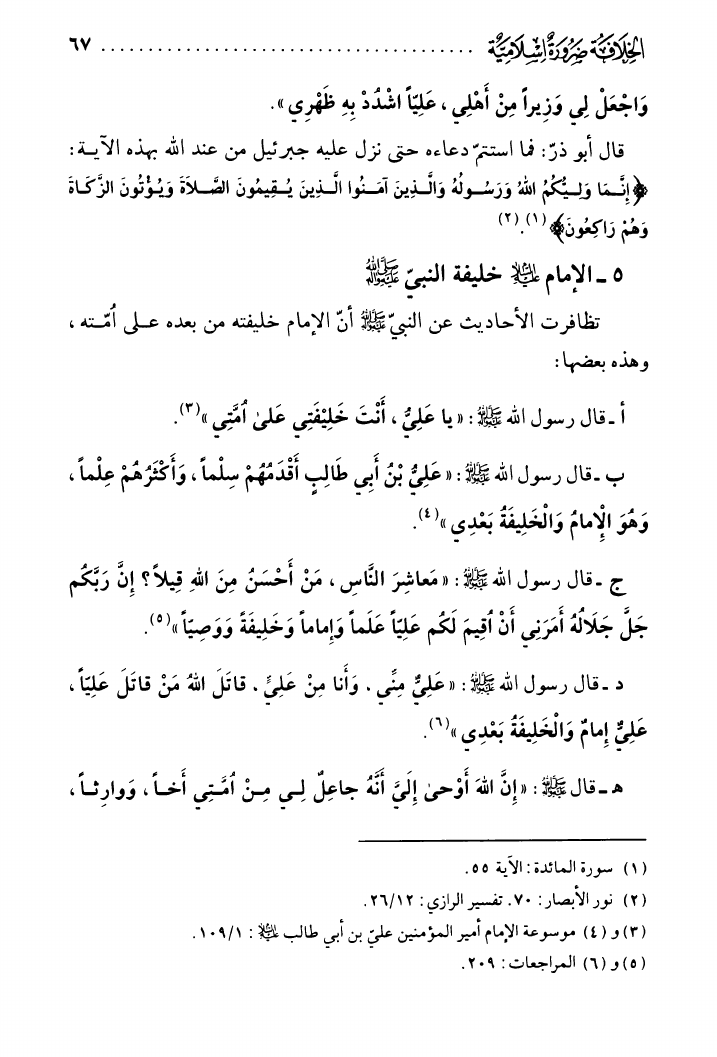 الخِلَافَة ضَرُورَةٌ إِسْلَامِيَّة ........................................ ٦٧
وَاجْعَلْ لِي وَزِيراً مِنْ أَهْلِي ، عَلِيّاً اشْدُدْ بِهِ ظَهْرِي ».
قال أبو ذرّ : فما استتمّ دعاءه حتى نزل عليه جبرئيل من عند الله بهذه الآية :
﴿إِنَّمَا وَلِيُّكُمُ اللهُ وَرَسُولُهُ وَالَّذِينَ آمَنُوا الَّذِينَ يُقِيمُونَ الصَّلَاةَ وَيُؤْتُونَ الزَّكَاةَ
وَهُمْ رَاكِعُونَ﴾(١).(٢)
٥ ـ الإمام عليه السلام خليفة النبيّ ﷺ
تظافرت الأحاديث عن النبيّ ﷺ أنّ الإمام خليفته من بعده على اُمّته ،
وهذه بعضها :
أ ـ قال رسول الله ﷺ : « يا عَلِيُّ ، أَنْتَ خَلِيفَتِي عَلىٰ اُمَّتِي »(٣).
ب ـ قال رسول الله ﷺ : « عَلِيُّ بْنُ أَبِي طَالِبٍ أَقْدَمُهُمْ سِلْماً ، وَأَكْثَرُهُمْ عِلْماً ،
وَهُوَ الْإِمامُ وَالْخَلِيفَةُ بَعْدِي »(٤).
ج ـ قال رسول الله ﷺ : « مَعاشِرَ النَّاسِ ، مَنْ أَحْسَنُ مِنَ اللهِ قِيلاً ؟ إِنَّ رَبَّكُم
جَلَّ جَلَالُهُ أَمَرَنِي أَنْ اُقِيمَ لَكُم عَلِيّاً عَلَماً وَإِماماً وَخَلِيفَةً وَوَصِيّاً »(٥).
د ـ قال رسول الله ﷺ : « عَلِيٌّ مِنِّي . وَأَنا مِنْ عَلِيٍّ . قاتَلَ اللهُ مَنْ قاتَلَ عَلِيّاً ،
عَلِيٌّ إِمامٌ وَالْخَلِيفَةُ بَعْدِي »(٦).
هـ ـ قال ﷺ : « إِنَّ اللهَ أَوْحىٰ إِلَيَّ أَنَّهُ جاعِلٌ لِي مِنْ اُمَّتِي أَخاً ، وَوارِثاً ،
(١) سورة المائدة : الآية ٥٥.
(٢) نور الأبصار : ٧٠. تفسير الرازي : ٢٦/١٢.
(٣) و (٤) موسوعة الإمام أمير المؤمنين عليّ بن أبي طالب عليه السلام : ١٠٩/١.
(٥) و (٦) المراجعات : ٢٠٩.